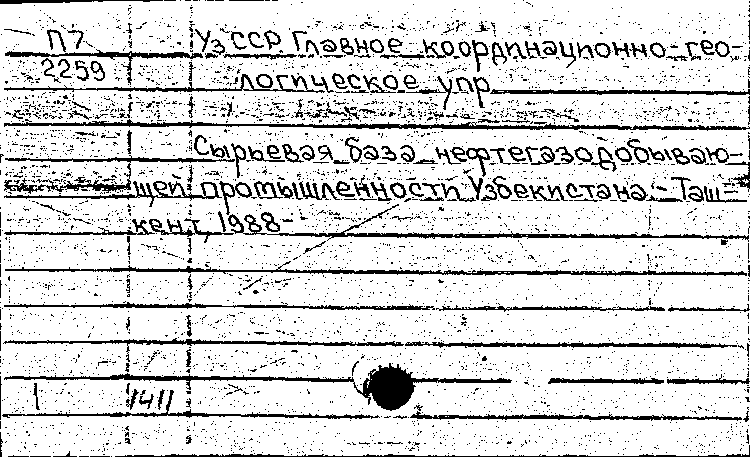 П7 Уз ССР Главное координационно-гео-
2259 логическое упр.
Сырьевая база нефтегазодобываю-
щей промышленности Узбекистана.- Таш-
кент, 1988-
1 1411